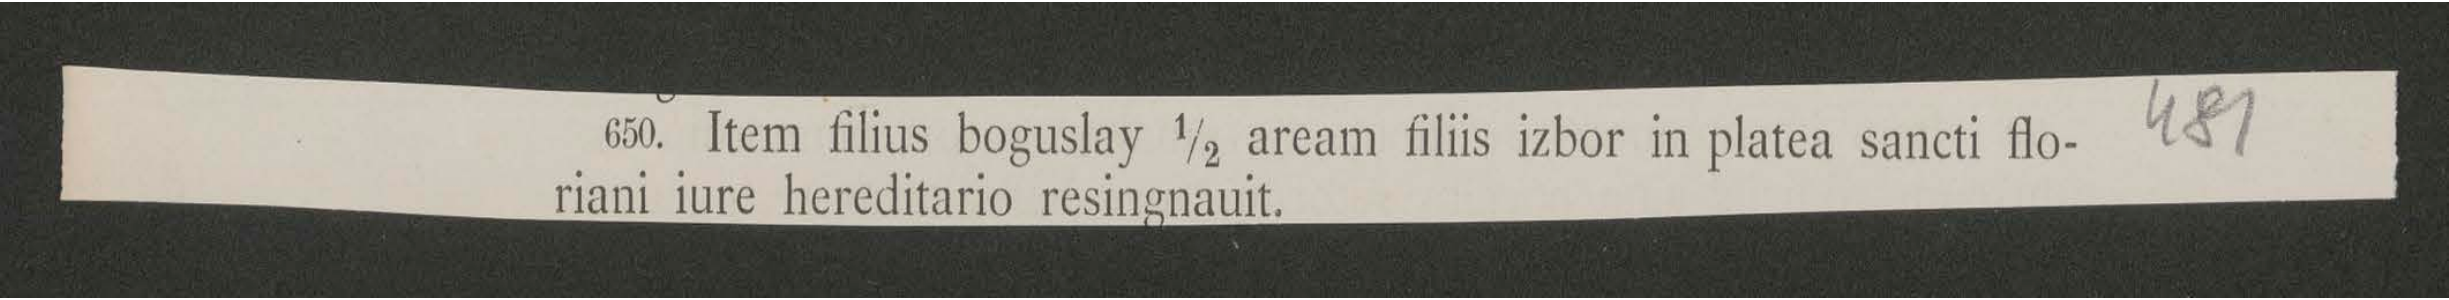 650. Item filius boguslay 1/2 aream filiis izbor in platea sancti flo- 481
riani iure hereditario resingnauit.